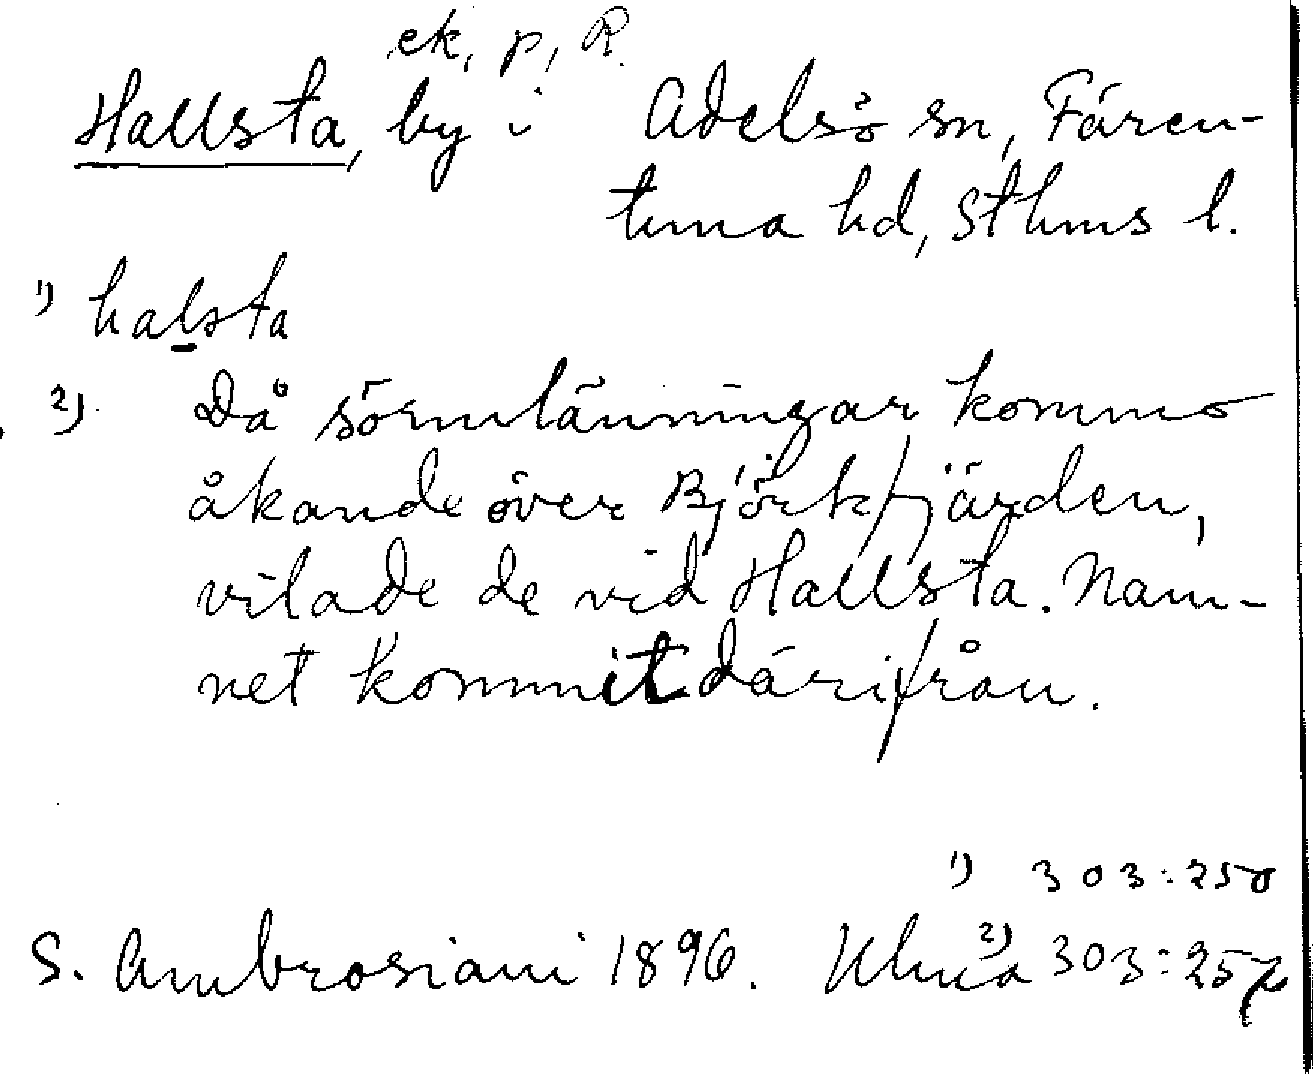 ek, p, R.
Hallsta, by i Adelsö sn, Fären-
tuna hd, Sthms l.
1) halsta
2) Då sörmlänningar kommo
åkande över Björkfjärden,
vilade de vid Hallsta. Nam-
net kommit därifrån.
1) 303:250
S. Ambrosiani 1896. Ulma 2) 303:257